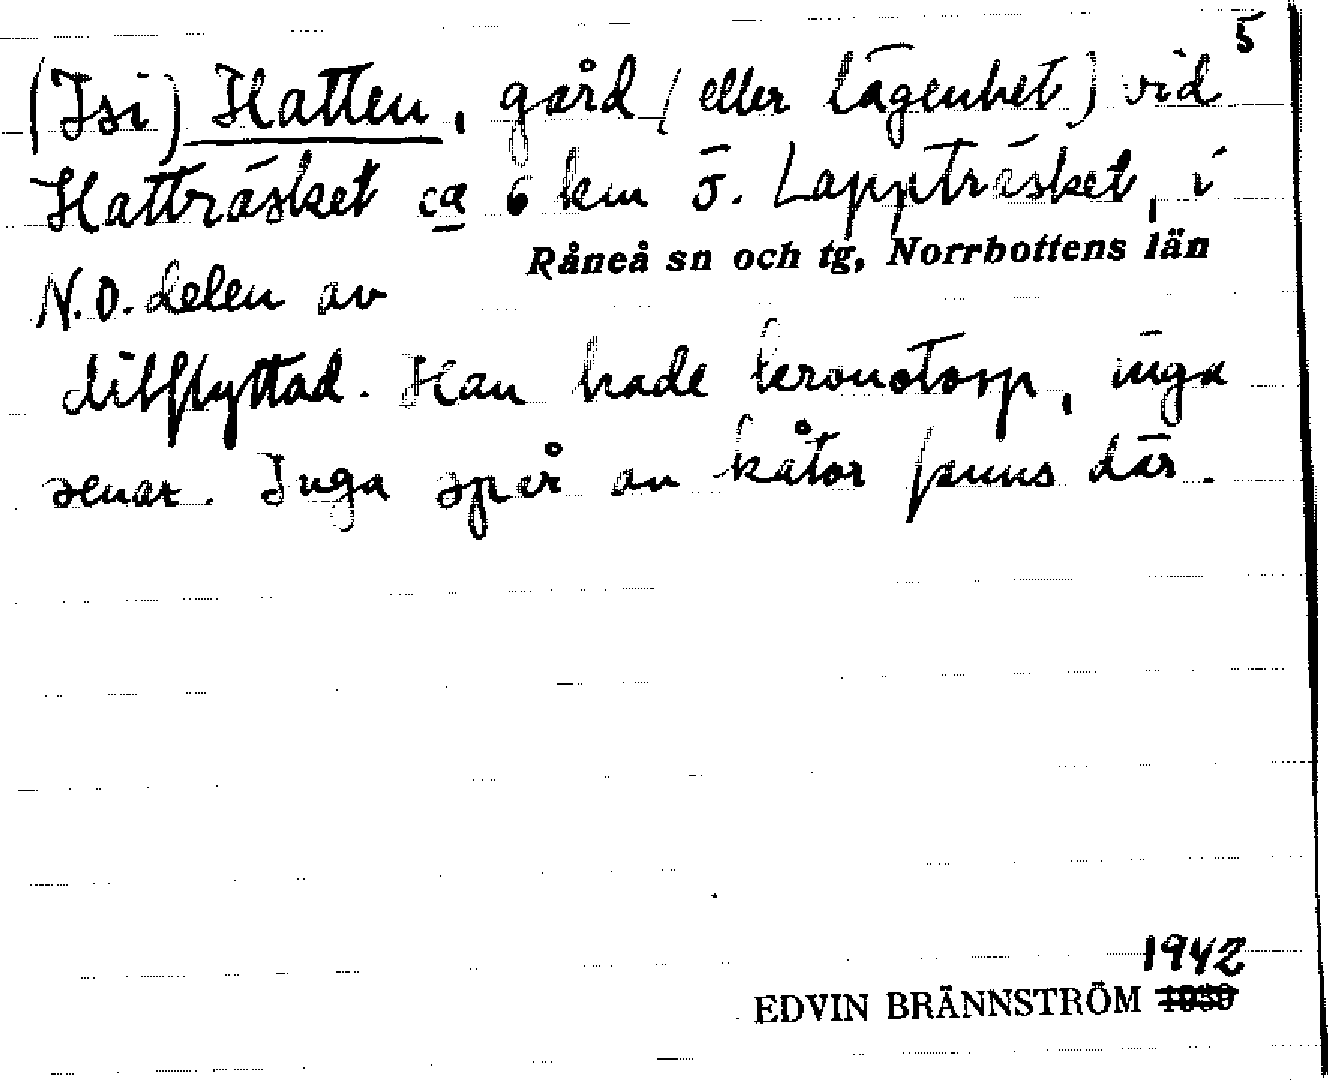 5
(Isi) Hatten, gård (eller lägenhet) vid
Hatträsket ca 6 km ö. Lappträsket, i
Råneå sn och tg, Norrbottens län
N.O. delen av
ditflyttad. Han hade kronotorp, inga
renar. Inga spår av kåtor fanns där.
1942
EDVIN BRÄNNSTRÖM 1939